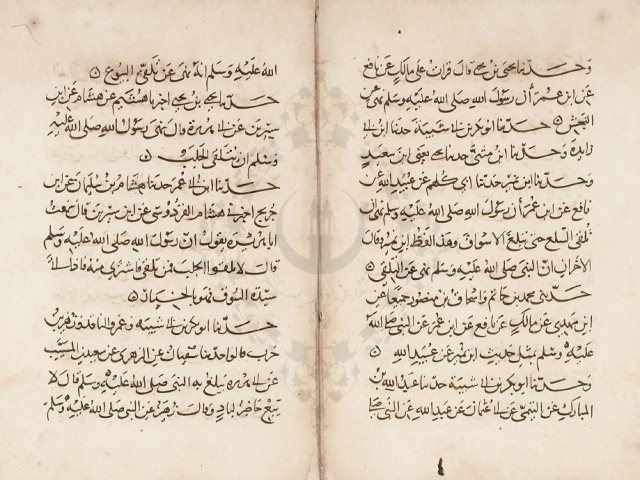 وحدثنا يحيى بن يحيى قال قرات على مالك عن نافع
عن ابن عمر أن رسول الله صلى الله عليه وسلم نهى عن
النجش ه حدثنا ابو بكر بن ابي شيبة حدثنا ابن ابي
زايدة وحدثنا ابن مثنى حدثنا يحيى يعني ابن سعيد
وحدثنا ابن نمير حدثنا ابي كلهم عن عبيد الله عن
نافع عن ابن عمر أن رسول الله صلى الله عليه وسلم نهى أن
تلقى السلع حتى تبلغ الاسواق وهذا لفظ ابن نمير وقال
الآخران ان النبي صلى الله عليه وسلم نهى عن التلقي ه
حدثني محمد بن حاتم واسحاق بن منصور جميعا عن
ابن مهدي عن مالك عن نافع عن ابن عمر عن النبي صلى الله
عليه وسلم بمثل حديث ابن نمير عن عبيد الله ه
وحدثنا ابو بكر بن ابي شيبة حدثنا عبد الله بن
المبارك عن التيمي عن ابي عثمان عن عبد الله عن النبي صلى
الله عليه وسلم انه نهى عن تلقي البيوع ه
حدثنا يحيى بن يحيى اخبرنا هشيم عن هشام عن ابن
سيرين عن ابي هريرة قال نهى رسول الله صلى الله عليه
وسلم ان يتلقى الجلب ه
حدثنا ابن ابي عمر حدثنا هشام بن سليمان عن ابن
جريج اخبرني هشام القردوسي عن ابن سيرين قال سمعت
ابا هريرة يقول ان رسول الله صلى الله عليه وسلم
قال لا تلقوا الجلب فمن تلقى فاشترى منه فاذا اتى
سيده السوق فهو بالخيار ه
حدثنا ابو بكر بن ابي شيبة وعمرو الناقد وزهير بن
حرب قالوا حدثنا سفيان عن الزهري عن سعيد بن المسيب
عن ابي هريرة يبلغ به النبي صلى الله عليه وسلم قال لا
يبع حاضر لباد وقال زهير عن النبي صلى الله عليه وسلم